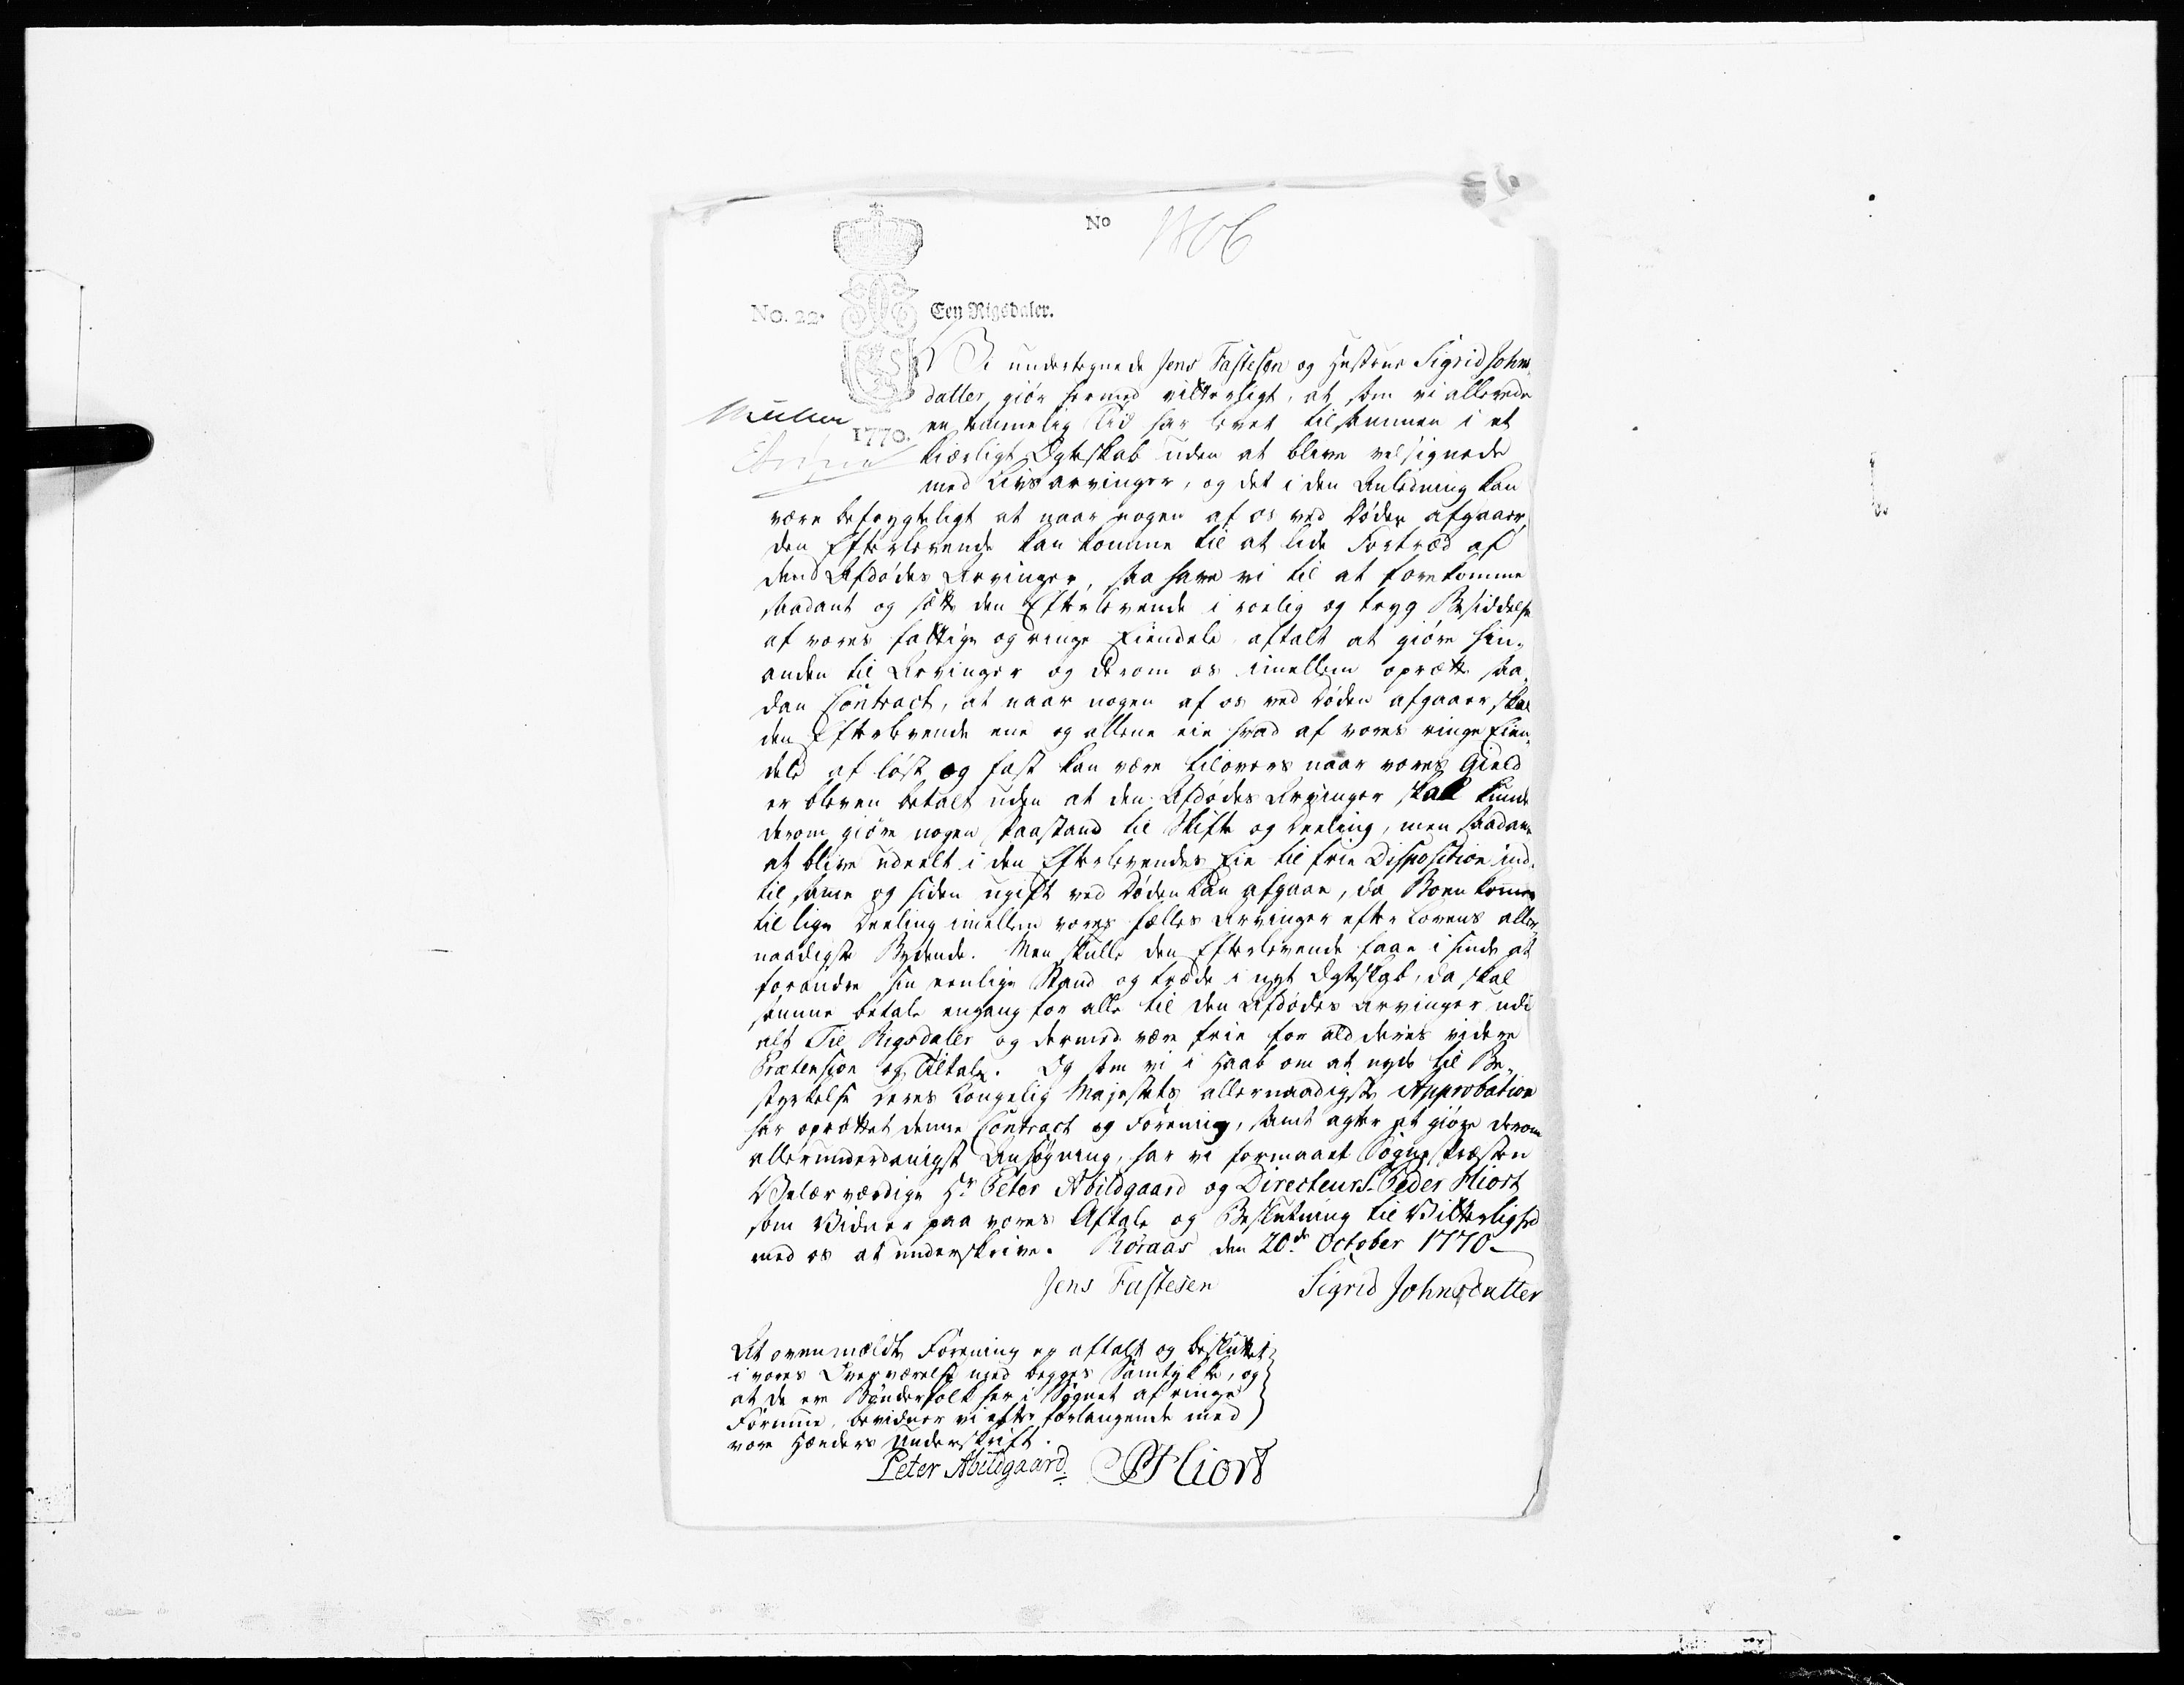 56
No 1106
No. 22. Een Rigsdaler.
Vi undertegnede Jens Fastesen og Hustrue Sigrid Johns
datter giör hermed vitterligt, at som vi allerede
Müller
en temmelig Tid har levet tilsammen i et
1770.
kiærligt Ægteskab uden at blive velsignede
med Livsarvinger, og det i den Anledning kan
være befrygteligt at naar nogen af os ved Döden afgaaer,
den Efterlevende kan komme til at lide Fortræd af
dend Afdödes Arvinger, saa have vi til at forekomme
saadant og sætte den Efterlevende i roelig og tryg Besiddelse
af vores fattige og ringe Eiendele aftalt at giöre hin-
anden til Arvinger og derom os imellem oprette saa-
dan Contract, at naar nogen af os ved Döden afgaaer skal
den Efterlevende ene og allene eie hvad af vores ringe Eien-
dele af löst og fast kan være tilovers naar vores Gield
er bleven betalt uden at den Afdödes Arvinger skal kunde
derom giöre nogen Paastand til Skifte og Deeling, men saadant
at blive udeelt i den Efterlevendes Eie til frie Disposition ind-
til samme og siden ugift ved Döden kan afgaae, da Boen kommer
til lige Deeling imellem vores fælles Arvinger efter Lovens aller-
naadigste Bydende. Men skulle den Efterlevende faae i sinde at
forandre sin eenlige Stand og træde i nyt Ægteskab, da skal
samme betale engang for alle til den Afdödes Arvinger udi
alt Tie Rigsdaler og dermed være frie for ald deres videre
Prætension og Tiltale. Og som vi i Haab om at nyde til Be-
styrkelse deres Kongelig Majestets allernaadigste Approbation
har oprettet denne Contract og Forening, samt agter at giöre derom
allerunderdanigst Ansögning, har vi formaaet Sognepræsten
Velærværdige Hr Peter Abildgaard og Directeur S. Peder Hiort
som Vidner paa vores Aftale og Beslutning til Vitterlighed
med os at underskrive. Röraas den 20de October 1770.
Jens Fastesen Sigrid Johnsdatter
At ovenmeldte Forening er aftalt og besluttet
i vores Overværelse med begges Samtykke, og
at de ere Bönderfolk her i Sognet af ringe
Formue, bevidner vi efter forlangende med
vore Hænders Underskrift.
Peter Abildgaard. P Hiort